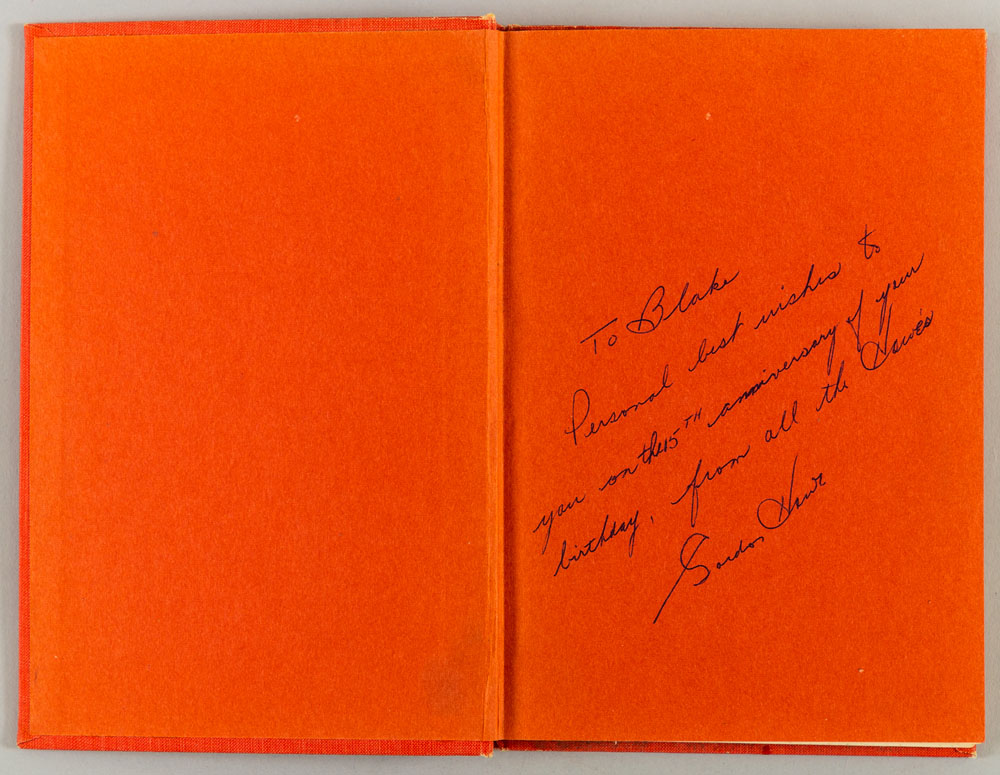 To Blake
Personal best wishes to
you on the 15TH anniversary of your
birthday, from all the Howe's
Gordon Howe